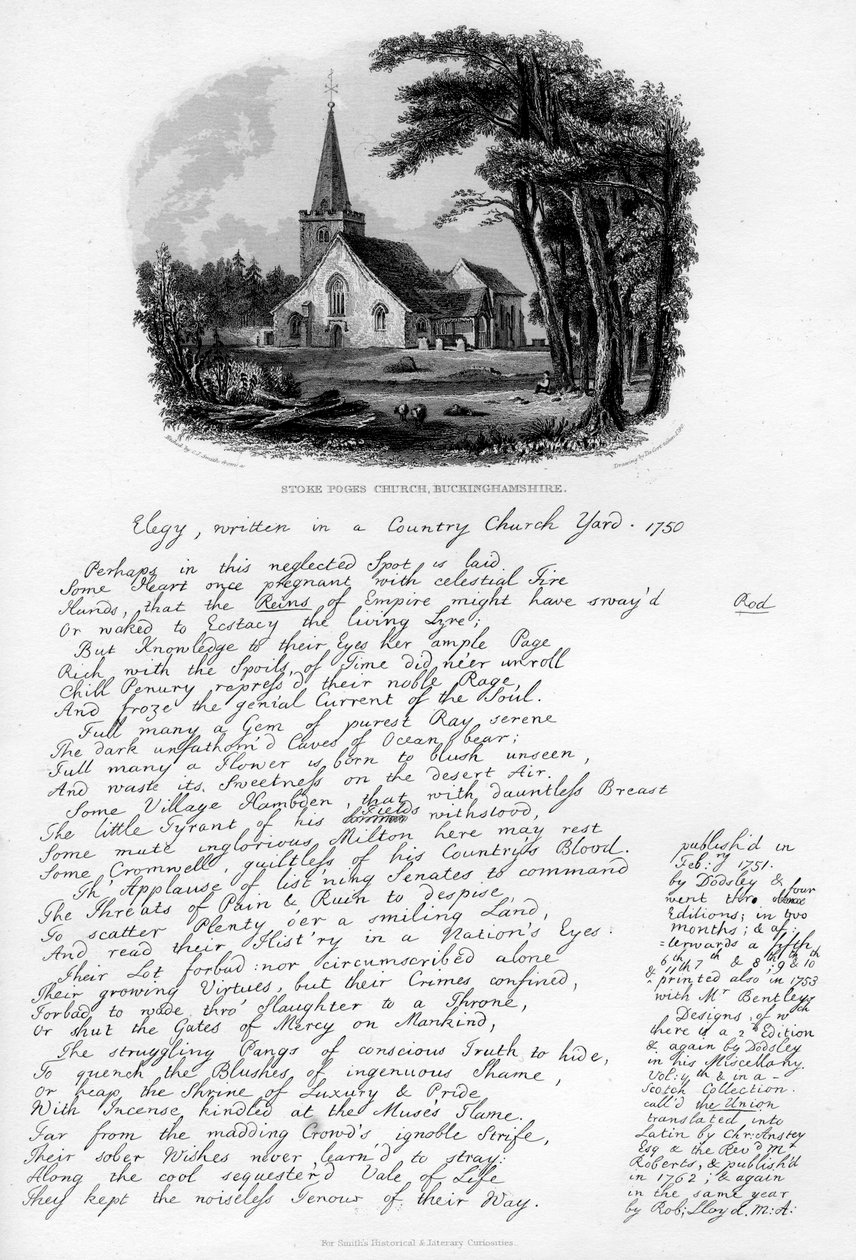 Etched by C. J. Smith
STOKE POGES CHURCH, BUCKINGHAMSHIRE.
Elegy, written in a Country Church Yard. 1750
Perhaps in this neglected Spot is laid
Some Heart once pregnant with celestial Fire
Hands, that the Reins of Empire might have sway'd
Rod
Or waked to Ecstacy the living Lyre;
But Knowledge to their Eyes her ample Page
Rich with the Spoils, of Time did ne'er unroll
Chill Penury repress'd their noble Rage,
And froze the genial Current of the Soul.
Full many a Gem of purest Ray serene
The dark unfathom'd Caves of Ocean bear;
Full many a Flower is born to blush unseen,
And waste its Sweetness on the desert Air.
Some Village Hambden, that with dauntless Breast
The little Tyrant of his Fields withstood,
Some mute inglorious Milton here may rest
Some Cromwell, guiltless of his Country's Blood.
Th' Applause of list'ning Senates to command
The Threats of Pain & Ruin to despise,
To scatter Plenty o'er a smiling Land,
And read their Hist'ry in a Nation's Eyes.
Their Lot forbad: nor circumscribed alone
Their growing Virtues, but their Crimes confined,
Forbad to wade thro' Slaughter to a Throne,
Or shut the Gates of Mercy on Mankind,
The struggling Pangs of conscious Truth to hide,
To quench the Blushes of ingenuous Shame,
Or heap the Shrine of Luxury & Pride
With Incense kindled at the Muse's Flame.
Far from the madding Crowd's ignoble Strife,
Their sober Wishes never learn'd to stray:
Along the cool sequester'd Vale of Life
They kept the noiseless Tenour of their Way.
publish'd in
Feb:ry 1751.
by Dodsley &
went thro four
Editions; in two
months; & af:
=terwards a fifth
6th 7th & 8th; 9th & 10th
& 11th
printed also in 1753
with Mr Bentley's
Designs, of wch
there is a 2d Edition
& again by Dodsley
in his Miscellany.
Vol: 4th & in a
Scotch Collection.
call'd the Union
translated into
Latin by Chr: Anstey
Esq & the Revd Mr
Roberts, & publish'd
in 1762; & again
in the same year
by Rob; Lloyd, M: A:
For Smith's Historical & Literary Curiosities.